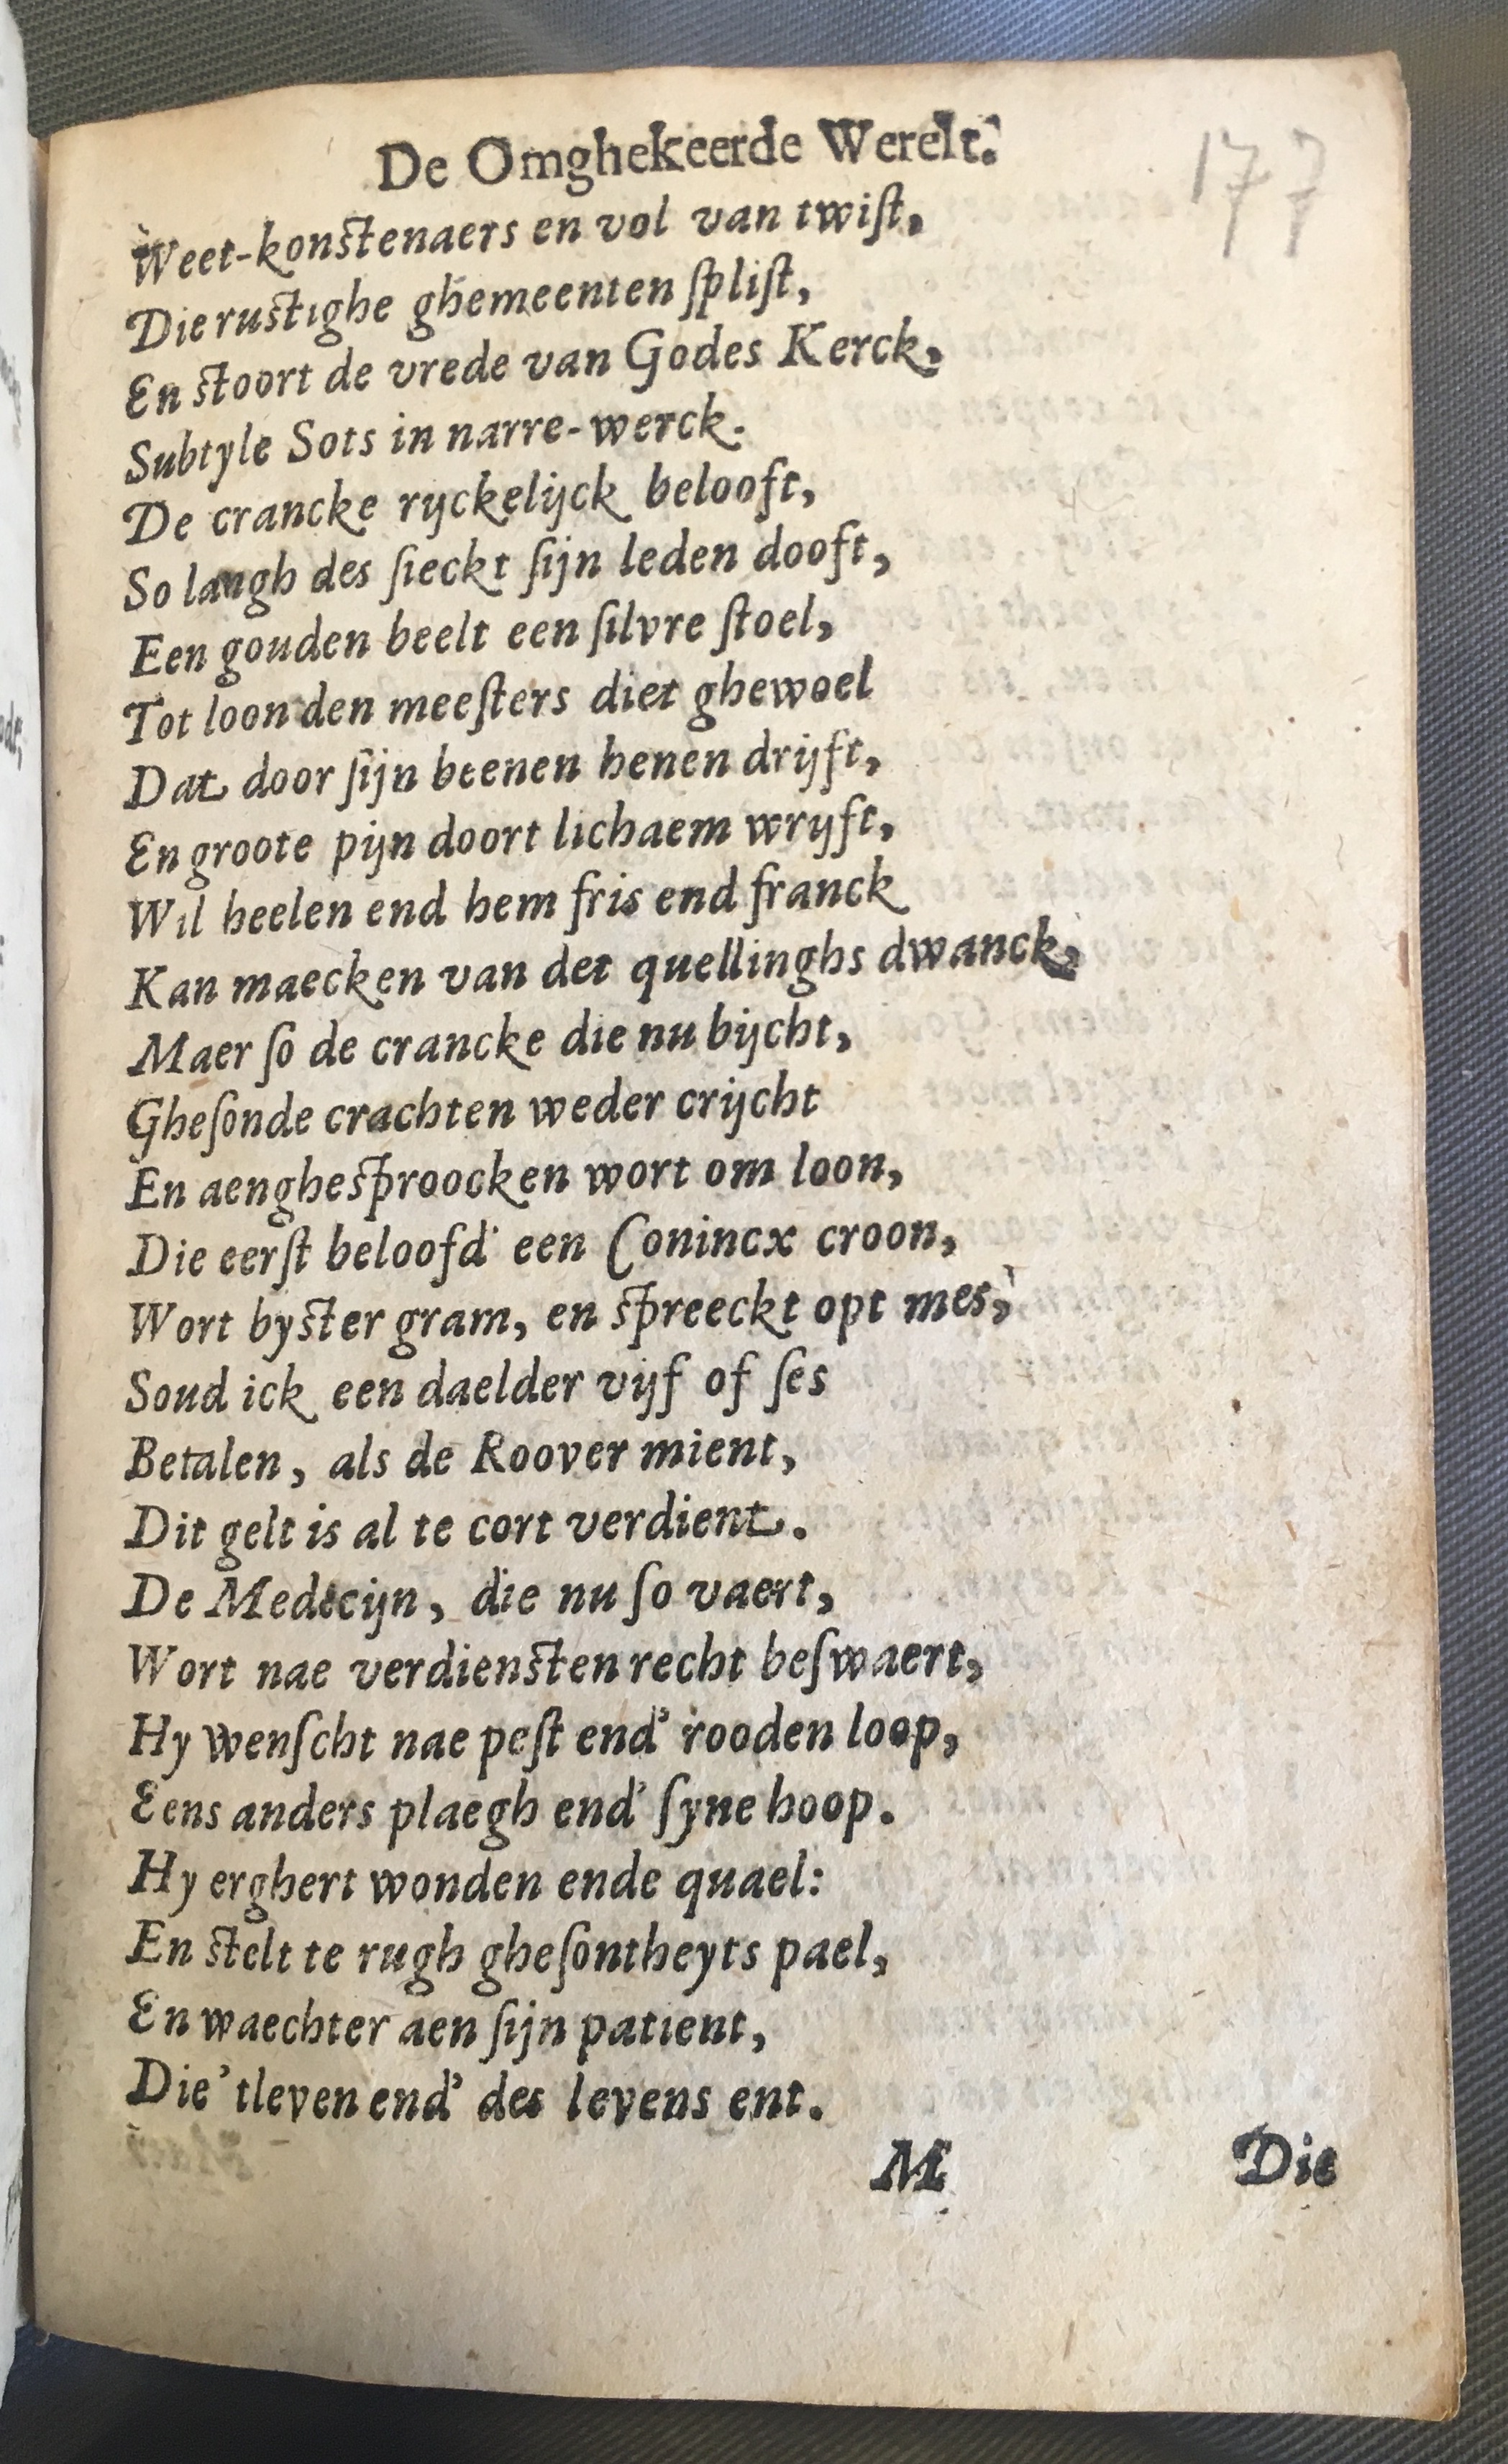 De Omghekeerde Werelt.
177
Weet-konstenaers en vol van twiſt,
Die rustighe ghemeenten ſpliſt,
En stoort de vrede van Godes Kerck,
Subtyle Sots in narre-werck.
De crancke ryckelijck belooft,
So langh des ſieckt ſijn leden dooft,
Een gouden beelt een ſilvre ſtoel,
Tot loon den meeſters diet ghewoel
Dat door ſijn beenen henen drijft,
En groote pijn doort lichaem wryft,
Wil heelen end hem fris end franck
Kan maecken van det quellinghs dwanck,
Maer ſo de crancke die nu bijcht,
Gheſonde crachten weder crijcht
En aenghesproocken wort om loon,
Die eerſt beloofd' een Conincx croon,
Wort byster gram, en spreeckt opt mes,
Soud ick een daelder vijf of ſes
Betalen, als de Roover mient,
Dit gelt is al te cort verdient.
De Medecijn, die nu ſo vaert,
Wort nae verdiensten recht beſwaert,
Hy wenſcht nae peſt end' rooden loop,
Eens anders plaegh end' ſyne hoop.
Hy erghert wonden ende quael:
En stelt te rugh gheſontheyts pael,
En waechter aen ſijn patient,
Die 'tleven end' des levens ent.
M Die